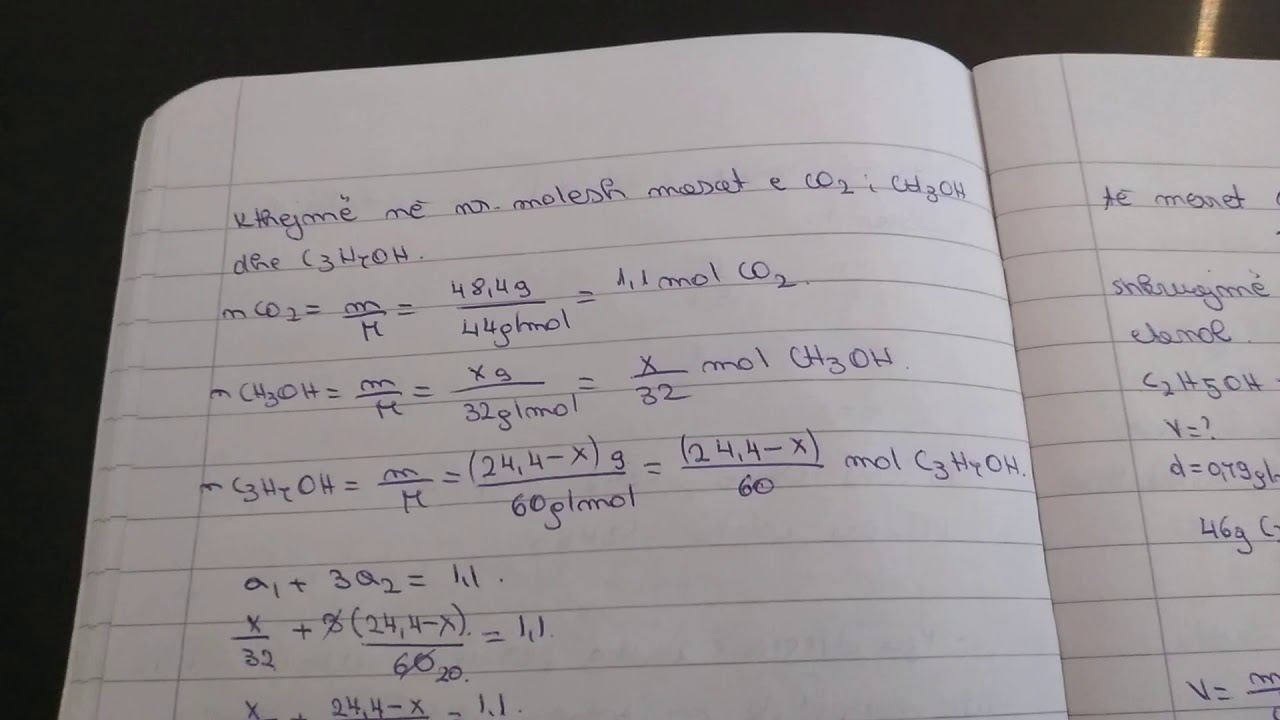 Kthejmë në nr. molesh masat e CO2 ; CH3OH
dhe C3H7OH.
nCO2 = m/M = 48,4g/44g/mol = 1,1 mol CO2.
nCH3OH = m/M = xg/32g/mol = x/32 mol CH3OH.
nC3H7OH = m/M = (24,4-x)g/60g/mol = (24,4-x)/60 mol C3H7OH.
a1 + 3a2 = 1,1.
x/32 + 3(24,4-x)/60 20. = 1,1.
x + 24,4-x = 1,1.
të merret
shkruajmë
etanol.
C2H5OH =
V=?
d=0,79g/
46g C2
V= m